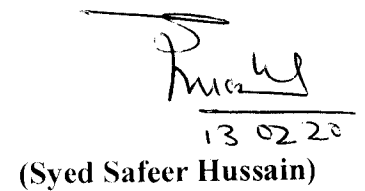 13 02 20
(Syed Safeer Hussain)